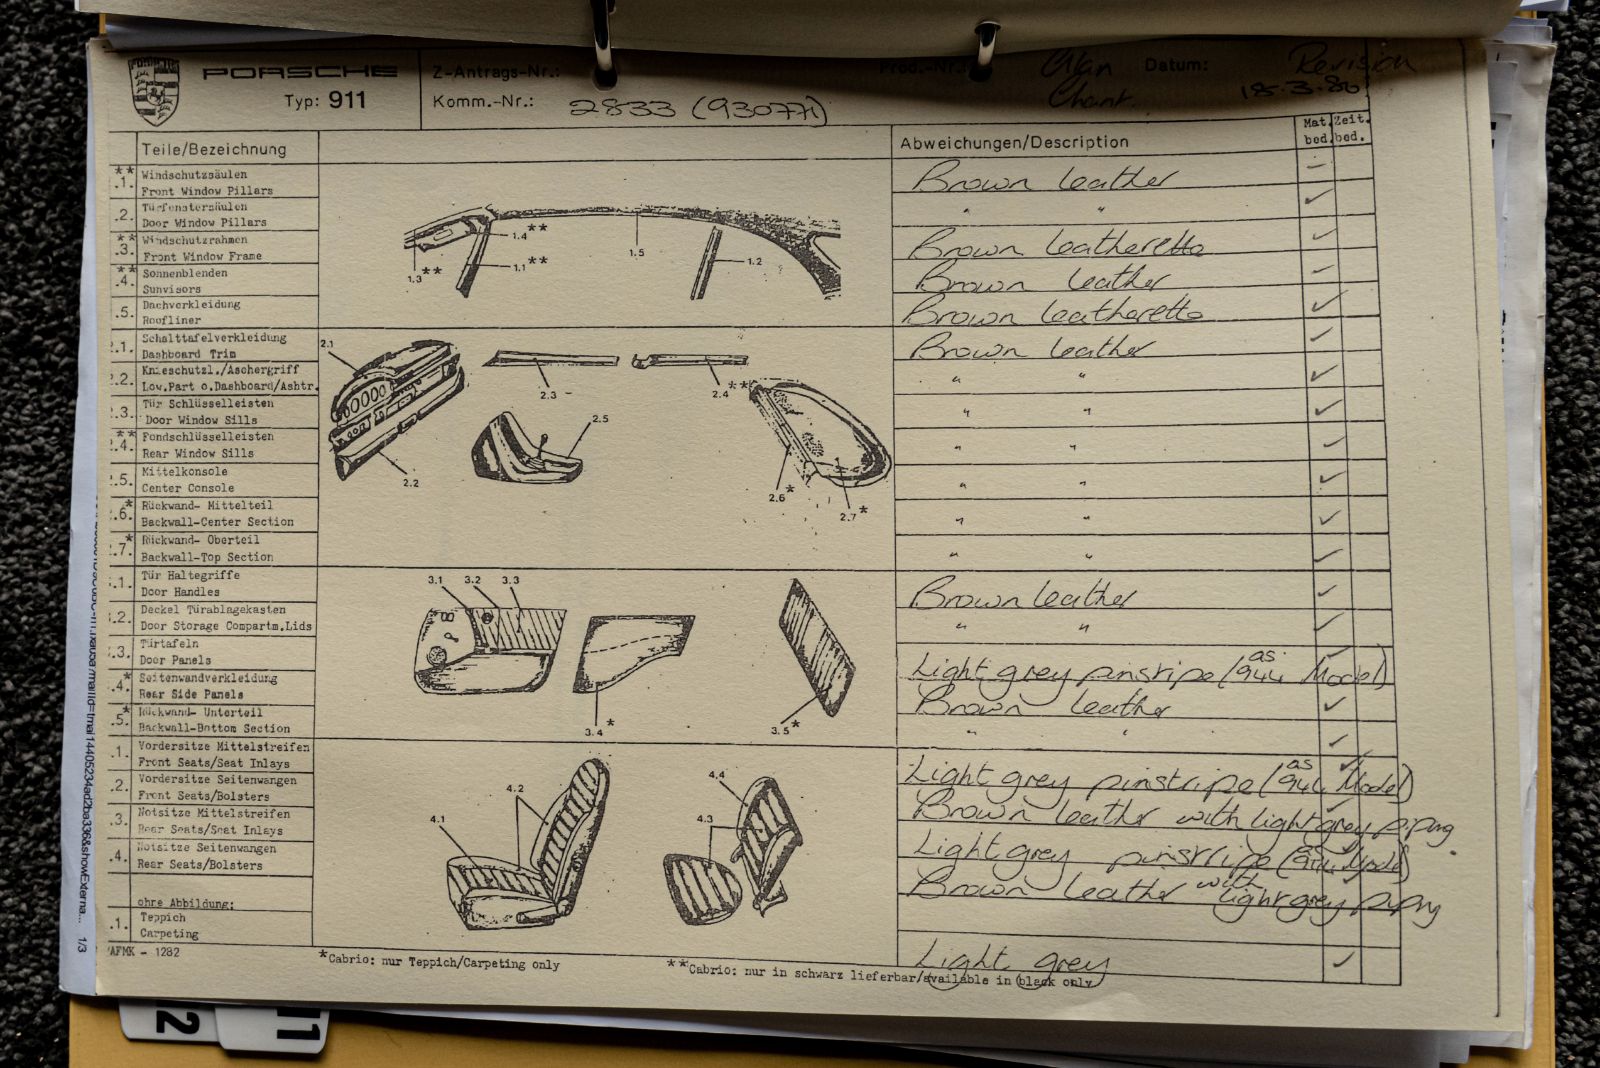 PORSCHE
Typ: 911
Z-Antrags-Nr.:
Komm.-Nr.: 2833 (93077)
Prod.-Nr.
Alan
Chant.
Datum: Revision
18.3.86
Teile/Bezeichnung
Abweichungen/Description
Mat. Zeit.
bed. bed.
**
.1. Windschutzsäulen
Front Window Pillars
Brown leather
.2. Türfenstersäulen
Door Window Pillars
" "
**
.3. Windschutzrahmen
Front Window Frame
Brown leatherette
**
.4. Sonnenblenden
Sunvisors
Brown leather
.5. Dachverkleidung
Roofliner
Brown leatherette
1.4** 1.5 1.2
1.3** 1.1**
2.1. Schalttafelverkleidung
Dashboard Trim
Brown leather
2.2. Knieschutzl./Aschergriff
Low.Part o.Dashboard/Ashtr.
" "
.3. Tür Schlüsselleisten
Door Window Sills
" "
**
.4. Fondschlüsselleisten
Rear Window Sills
" "
.5. Mittelkonsole
Center Console
" "
.6.* Rückwand- Mittelteil
Backwall-Center Section
" "
.7.* Rückwand- Oberteil
Backwall-Top Section
" "
2.1 2.3 2.4**
2.5
2.2 2.6* 2.7*
.1. Tür Haltegriffe
Door Handles
Brown leather
.2. Deckel Türablagekasten
Door Storage Compartm.Lids
" "
.3. Türtafeln
Door Panels
Light grey pinstripe (as 944 Model)
.4.* Seitenwandverkleidung
Rear Side Panels
Brown leather
.5.* Rückwand- Unterteil
Backwall-Bottom Section
" "
3.1 3.2 3.3
3.4* 3.5*
.1. Vordersitze Mittelstreifen
Front Seats/Seat Inlays
Light grey pinstripe (as 944 Model)
.2. Vordersitze Seitenwangen
Front Seats/Bolsters
Brown leather with light grey piping
.3. Notsitze Mittelstreifen
Rear Seats/Seat Inlays
Light grey pinstripe (944 Model)
.4. Notsitze Seitenwangen
Rear Seats/Bolsters
Brown leather with light grey piping
4.2 4.4
4.1 4.3
ohne Abbildung:
.1. Teppich
Carpeting
Light grey
AFMK - 1282
*Cabrio: nur Teppich/Carpeting only
**Cabrio: nur in schwarz lieferbar/available in black only
1/3
2
11